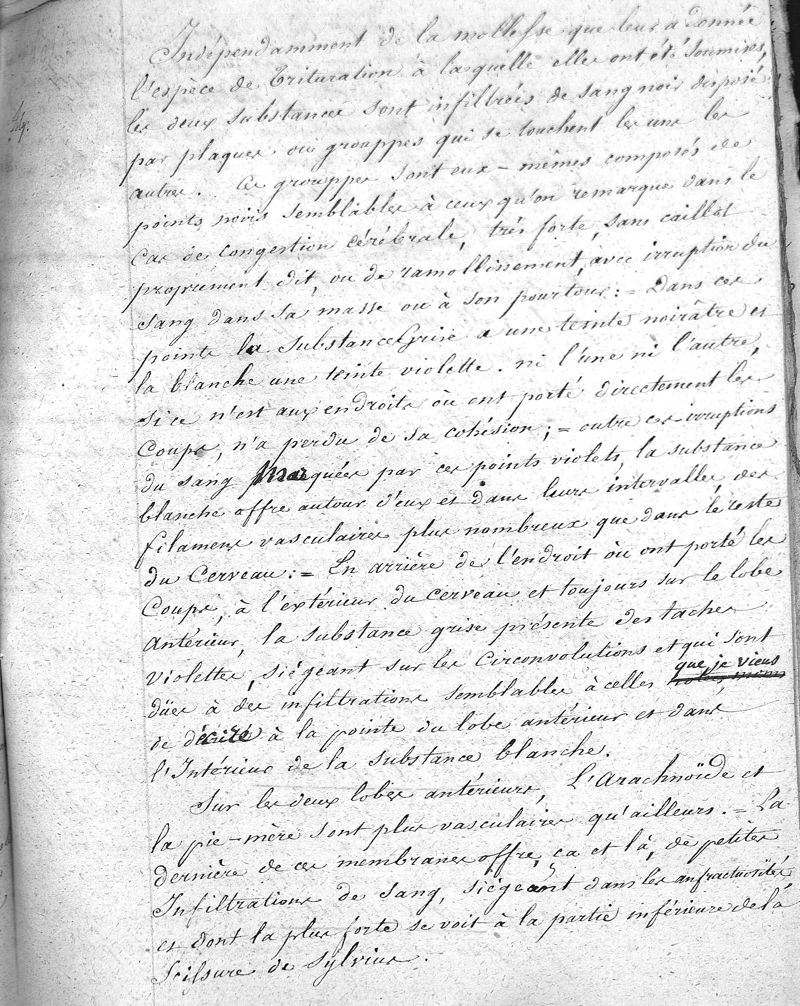 Indépendamment de la mollesse que leur a donnée
l'espèce de Trituration à laquelle elles ont été soumises,
les deux substances sont infiltrées de sang noir disposé
par plaques ou grouppes qui se touchent les uns les
autres. Ces grouppes sont eux-mêmes composés de
points noirs semblables à ceux qu'on remarque dans le
Cas de Congestion Cérébrale, très forte, sans caillot
proprement dit, ou de ramollissement, avec irruption du
Sang dans sa masse ou à son pourtour := Dans ces
points la Substance Grise a une teinte noirâtre et
la blanche une teinte violette. ni l'une ni l'autre,
si ce n'est aux endroits où ont porté directement les
Coups, n'a perdu de sa cohésion ; = outre ces irruptions
du sang marquées par ces points violets, la substance
blanche offre autour d'eux et dans leurs intervalles des
filamens vasculaires plus nombreux que dans le reste
du Cerveau := En arrière de l'endroit où ont porté les
Coups, à l'extérieur du cerveau et toujours sur le lobe
Antérieur, la substance grise présente des taches
violettes, siégeant sur les Circonvolutions et qui sont
dües à des infiltrations semblables à celles que je viens
de décrire à la pointe du lobe antérieur et dans
l'Intérieur de la substance blanche.
Sur les deux lobes antérieurs, L'Arachnoïde et
la pie-mère sont plus vasculaires qu'ailleurs. = La
dernière de ces membranes offre, ça et là, de petites
Infiltrations de sang, siégeant dans les anfractuosités
et dont la plus forte se voit à la partie inférieure de la
Scissure de Sylvius.